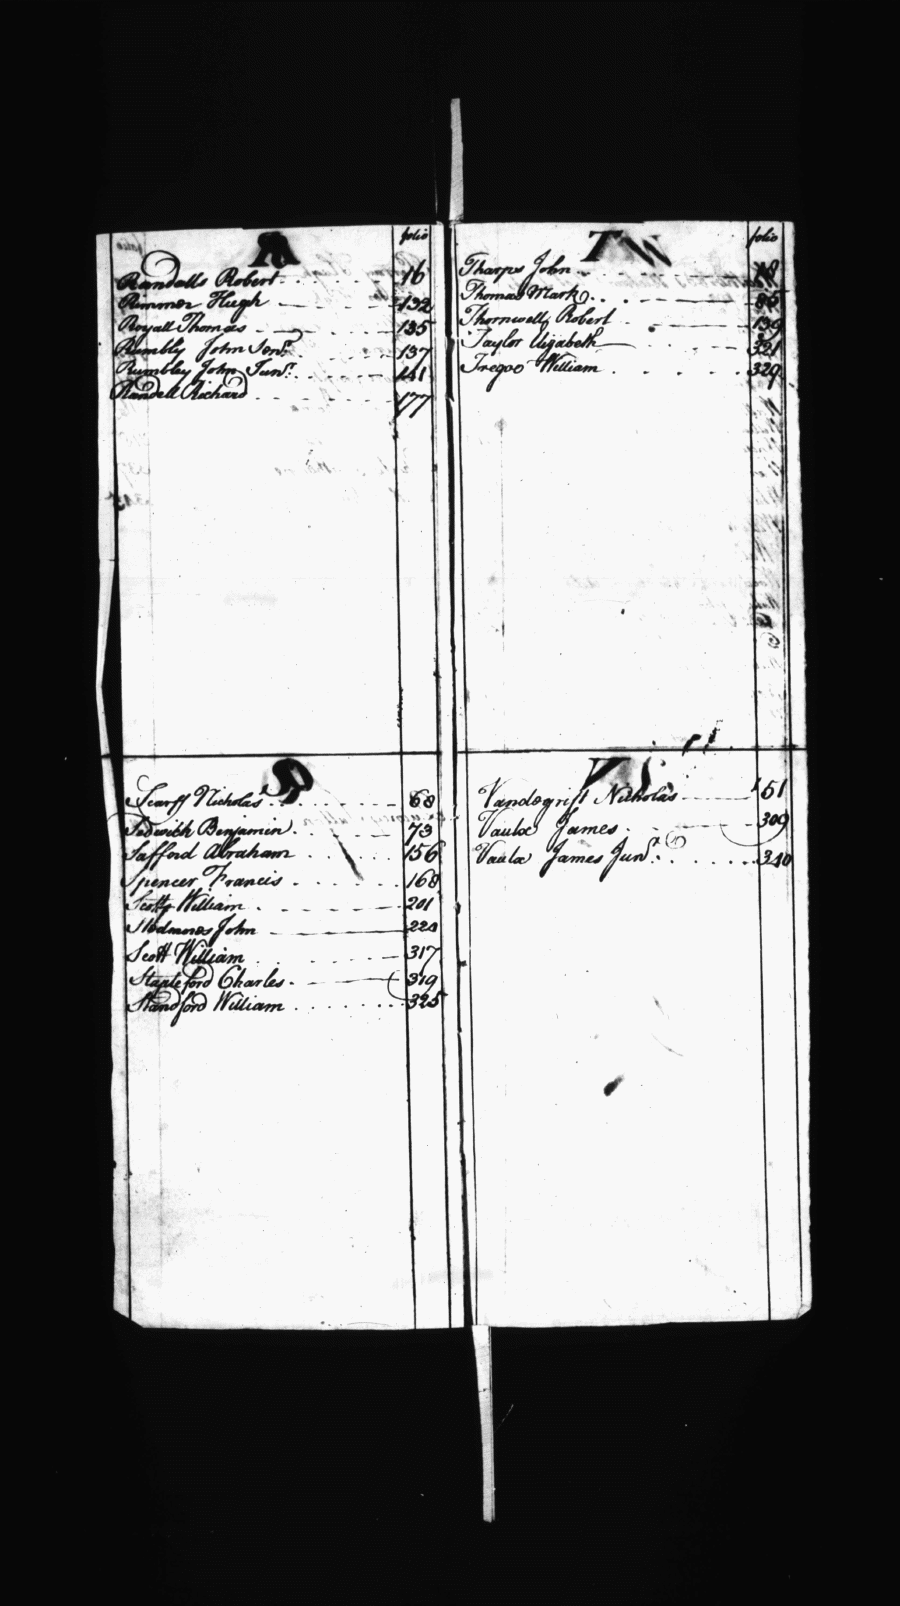 R
folio
Randalls Robert 16
Rimmer Hugh 132
Royall Thomas 135
Rumbly John Senr. 137
Rumbley John Junr. 141
Randell Richard 177
T
folio
Tharps John
Thomas Mark 85
Thornwell Robert 139
Taylor Elizabeth 321
Tregoo William 329
S
Scarff Nicholas 68
Sedwith Benjamin 73
Safford Abraham 156
Spencer Francis 168
Scott William 201
John 220
Scott William 317
Stapleford Charles 319
Standford William 325
V
Vandegrift Nicholas 151
Vaulx James 309
Vaulx James Junr. 340